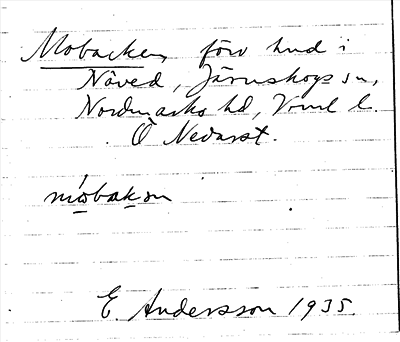 Mobacken, förv hud i
Nåved, Järnskogs sn,
Nordmarks hd, Vrml l.
Ö Nedarst.
móbakən
E. Andersson 1935